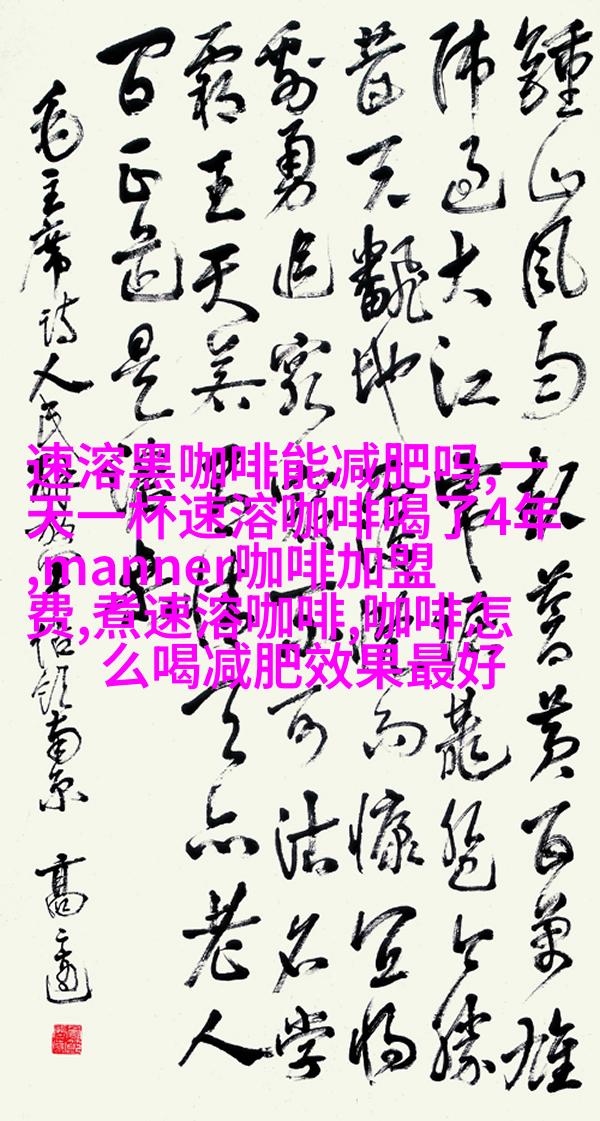 鍾山风雨起苍黄百萬雄
师过大江虎踞龍盘今胜
昔天翻地覆慨而慷宜将
剩勇追窮寇不可沽名学
霸王天若有情天亦老人
间正道是滄桑
毛主席诗人民解放军占领南京 高
速溶黑咖啡能减肥吗,一
天一杯速溶咖啡喝了4年
,manner咖啡加盟
费,煮速溶咖啡,咖啡怎
么喝减肥效果最好